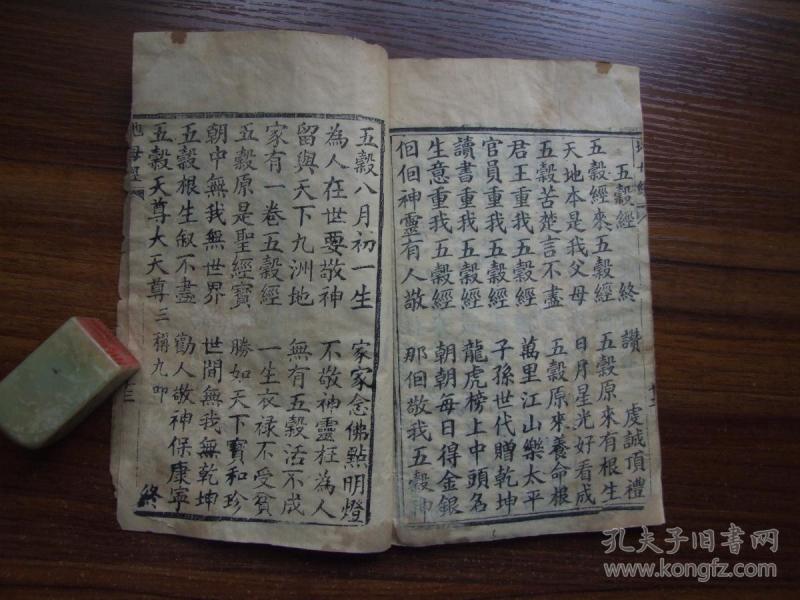 五穀經　終　讚　虔誠頂禮
五穀經來五穀經　五穀原來有根生
天地本是我父母　日月星光好看成
五穀苦楚言不盡　五穀原來養命根
君王重我五穀經　萬里江山樂太平
官員重我五穀經　子孫世代贈乾坤
讀書重我五穀經　龍虎榜上中頭名
生意重我五穀經　朝朝每日得金銀
佪佪神靈有人敬　那佪敬我五穀神
五穀八月初一生　家家念佛點明燈
為人在世要敬神　不敬神靈枉為人
留與天下九洲地　無有五穀活不成
家有一卷五穀經　一生衣禄不受貧
五穀原是聖經寳　勝如天下寳和珍
朝中無我無世界　世間無我無乾坤
五穀根生叙不盡　勸人敬神保康寧
五穀天尊大天尊　三稱九叩　終
地母經
孔夫子旧书网
www.kongfz.com